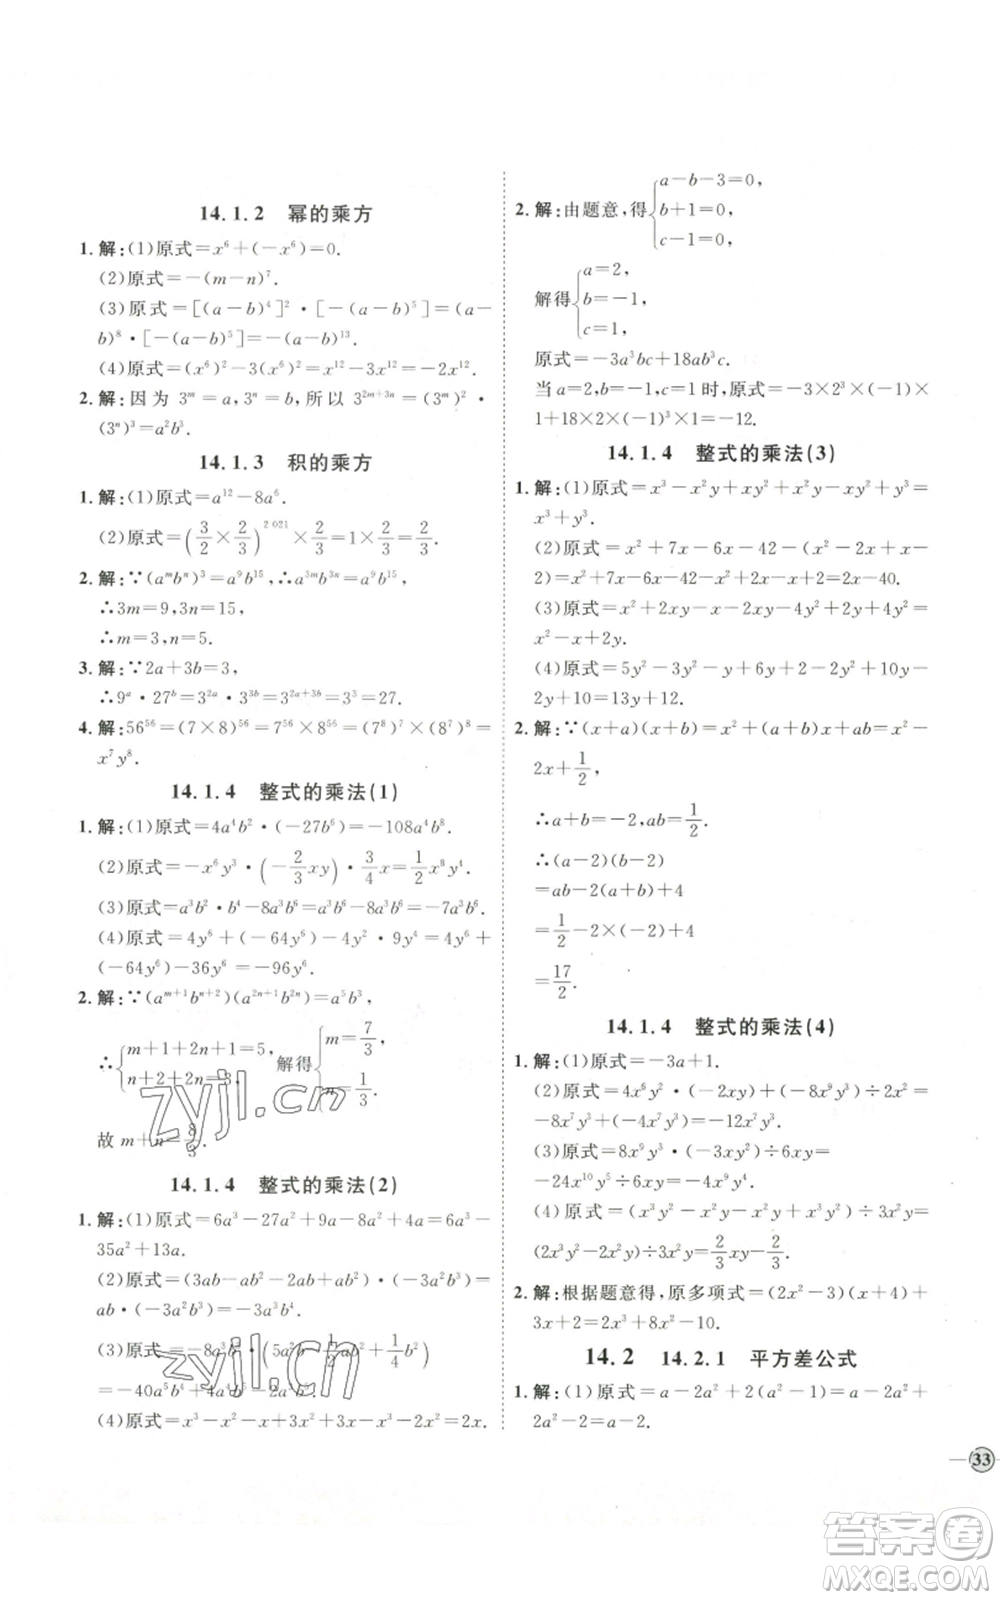 14.1.2 幂的乘方
1.解:(1)原式=x⁶+(-x⁶)=0.
(2)原式=-(m-n)⁷.
(3)原式=[(a-b)⁴]²·[-(a-b)⁵]=(a-
b)⁸·[-(a-b)⁵]=-(a-b)¹³.
(4)原式=(x⁶)²-3(x⁶)²=x¹²-3x¹²=-2x¹².
2.解:因为3ᵐ=a,3ⁿ=b,所以3²ᵐ⁺³ⁿ=(3ᵐ)²·
(3ⁿ)³=a²b³.
14.1.3 积的乘方
1.解:(1)原式=a¹²-8a⁶.
(2)原式=(3/2×2/3)²⁰²¹×2/3=1×2/3=2/3.
2.解:∵(aᵐbⁿ)³=a⁹b¹⁵,∴a³ᵐb³ⁿ=a⁹b¹⁵,
∴3m=9,3n=15,
∴m=3,n=5.
3.解:∵2a+3b=3,
∴9ᵃ·27ᵇ=3²ᵃ·3³ᵇ=3²ᵃ⁺³ᵇ=3³=27.
4.解:56⁵⁶=(7×8)⁵⁶=7⁵⁶×8⁵⁶=(7⁸)⁷×(8⁷)⁸=
x⁷y⁸.
14.1.4 整式的乘法(1)
1.解:(1)原式=4a⁴b²·(-27b⁶)=-108a⁴b⁸.
(2)原式=-x⁶y³·(-2/3xy)·3/4x=1/2x⁸y⁴.
(3)原式=a³b²·b⁴-8a³b⁶=a³b⁶-8a³b⁶=-7a³b⁶.
(4)原式=4y⁶+(-64y⁶)-4y²·9y⁴=4y⁶+
(-64y⁶)-36y⁶=-96y⁶.
2.解:∵(aᵐ⁺¹bⁿ⁺²)(a²ⁿ⁺¹b²ⁿ)=a⁵b³,
∴{m+1+2n+1=5,n+2+2n=3, 解得{m=7/3,n=1/3.
故m+n=8/3.
14.1.4 整式的乘法(2)
1.解:(1)原式=6a³-27a²+9a-8a²+4a=6a³-
35a²+13a.
(2)原式=(3ab-ab²-2ab+ab²)·(-3a²b³)=
ab·(-3a²b³)=-3a³b⁴.
(3)原式=-8a³b³·(5a²b-1/2ab²+1/4b³)
=-40a⁵b⁴+4a⁴b⁵-2a³b⁶.
(4)原式=x²-x³+x³+x-x³-x²+x³+x=2x.
2.解:由题意,得{a-b-3=0,b+1=0,c-1=0,
解得{a=2,b=-1,c=1,
原式=-3a³bc+18ab³c.
当a=2,b=-1,c=1时,原式=-3×2³×(-1)×
1+18×2×(-1)³×1=-12.
14.1.4 整式的乘法(3)
1.解:(1)原式=x³-x²y+xy²+x²y-xy²+y³=
x³+y³.
(2)原式=x²+7x-6x-42-(x²-2x+x-
2)=x²+x-42-x²+2x-x+2=2x-40.
(3)原式=x²+2xy-x-2xy-4y²+2y+4y²=
x²-x+2y.
(4)原式=5y²-(3y²-6y-y+2)-2(y²+y-5y-
5)=5y²-3y²+6y+y-2-2y²-2y+10y+10=13y+8.
2.解:∵(x+a)(x+b)=x²+(a+b)x+ab=x²-
2x+1/2,
∴a+b=-2,ab=1/2.
∴(a-2)(b-2)
=ab-2(a+b)+4
=1/2-2×(-2)+4
=17/2.
14.1.4 整式的乘法(4)
1.解:(1)原式=-3a+1.
(2)原式=4x⁶y²·(-2xy)+(-8x⁹y³)÷2x²=
-8x⁷y³-4x⁷y³=-12x⁷y³.
(3)原式=8x⁹y³·(-3xy²)÷x²=
-24x¹⁰y⁵÷x²=-24x⁸y⁵.
(4)原式=(x³y²-x²y-x²y+x³y²)÷3x²y=
(2x³y²-2x²y)÷3x²y=2/3xy-2/3.
2.解:根据题意得,原多项式=(2x²-3)(x+4)+
3x+2=2x³+8x²-10.
14.2 14.2.1 平方差公式
1.解:(1)原式=a-2a²+2(a²-1)=a-2a²+
2a²-2=a-2.
33
zyjl.cn
zyjl.cn
答案卷
MXQE.COM